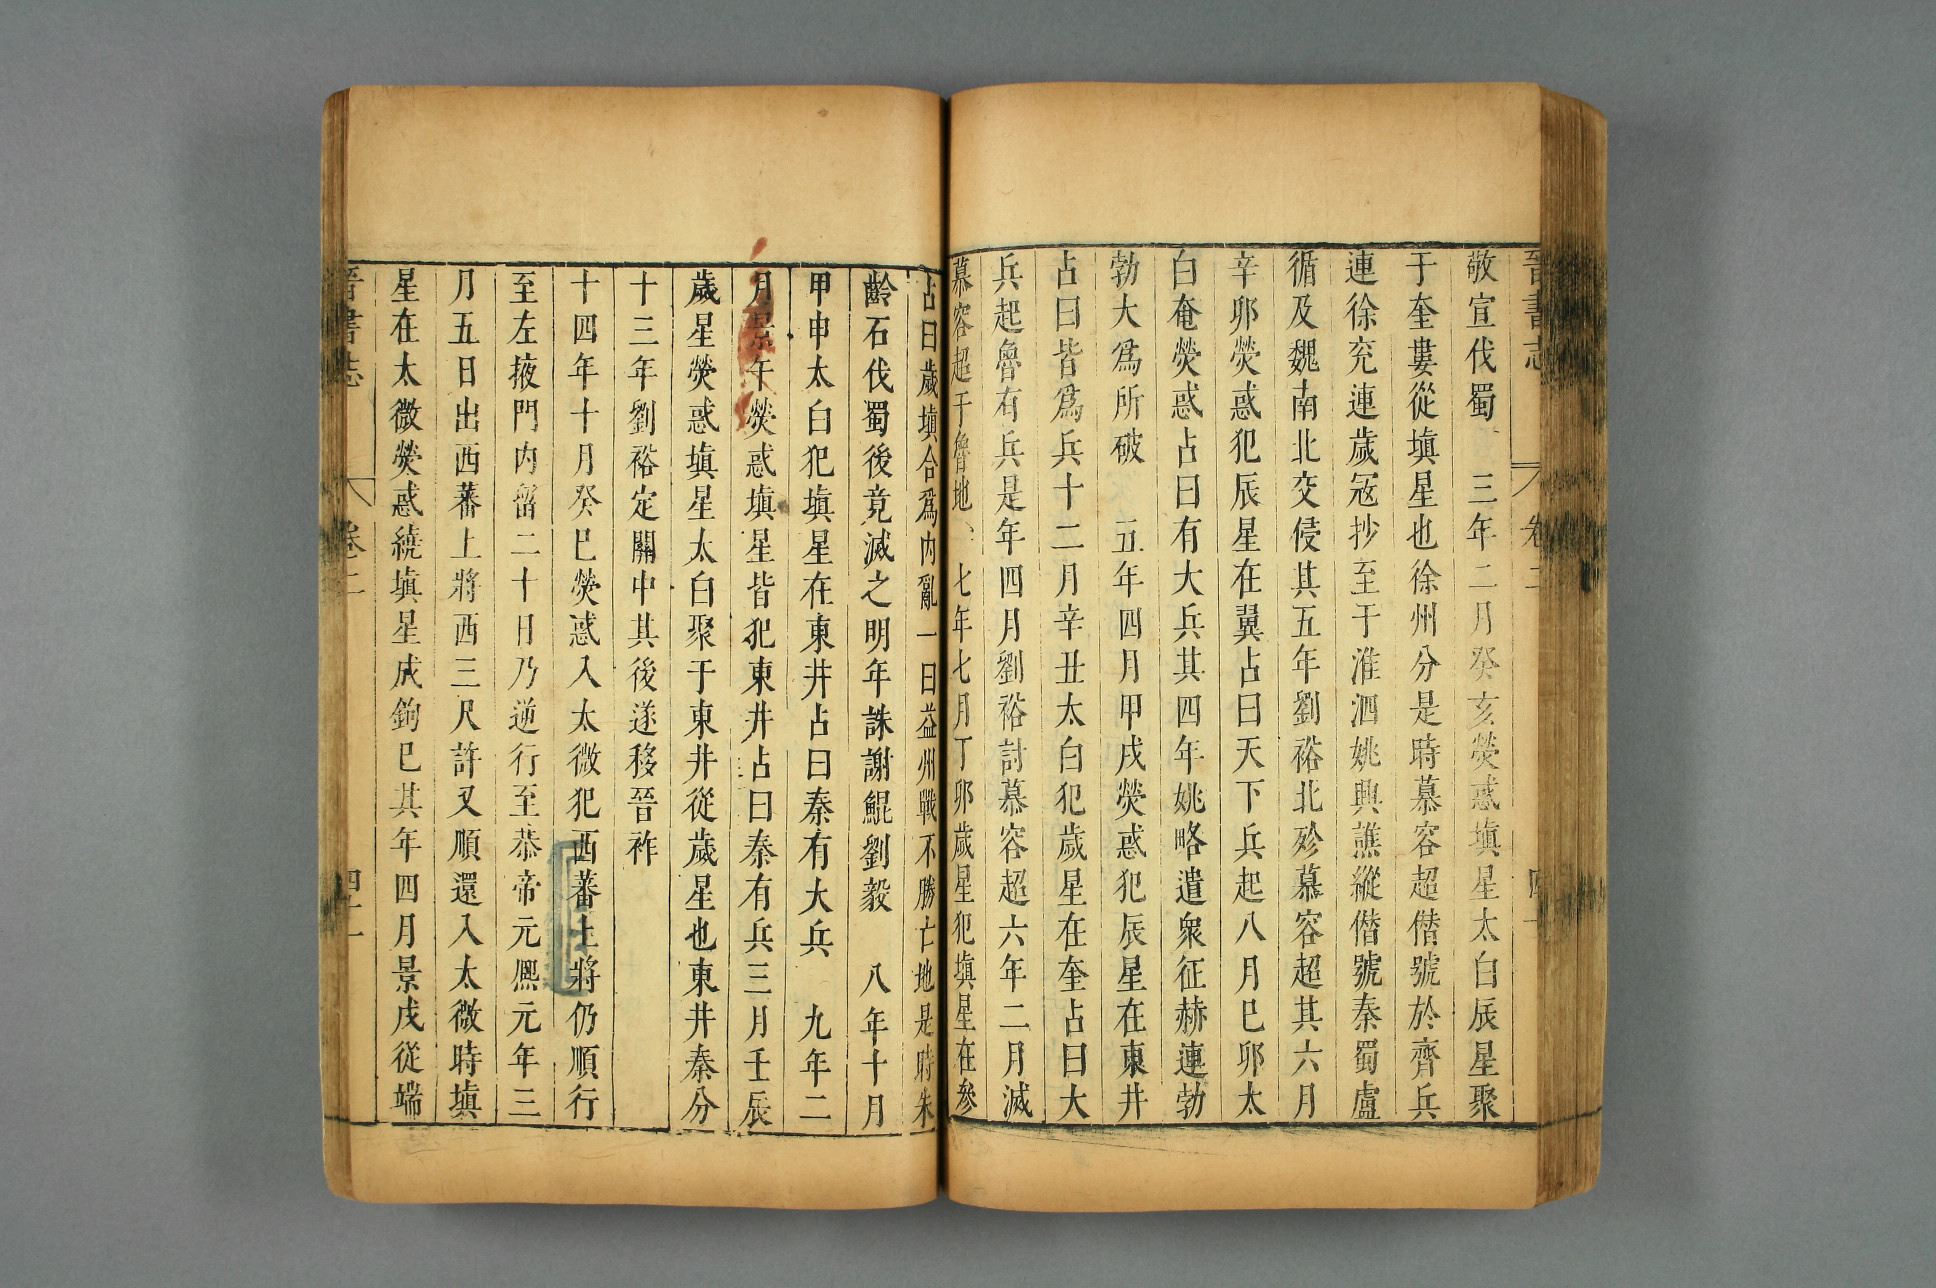 晉書志 卷二 四十
敬宣伐蜀 三年二月癸亥熒惑塡星太白辰星聚
于奎婁從塡星也徐州分是時慕容超僭號於齊兵
連徐兗連歲冦抄至于淮泗姚興譙縱僭號秦蜀盧
循及魏南北交侵其五年劉裕北殄慕容超其六月
辛卯熒惑犯辰星在翼占曰天下兵起八月巳卯太
白奄熒惑占曰有大兵其四年姚略遣衆征赫連勃
勃大爲所破 五年四月甲戌熒惑犯辰星在東井
占曰皆爲兵十二月辛丑太白犯歲星在奎占曰大
兵起魯有兵是年四月劉裕討慕容超六年二月滅
慕容超于魯地 七年七月丁卯歲星犯塡星在參
占曰歲塡合爲内亂一曰益州戰不勝亡地是時朱
齡石伐蜀後竟滅之明年誅謝鯤劉毅 八年十月
甲申太白犯塡星在東井占曰秦有大兵 九年二
月景午熒惑塡星皆犯東井占曰秦有兵三月壬辰
歲星熒惑塡星太白聚于東井從歲星也東井秦分
十三年劉裕定關中其後遂移晉祚
十四年十月癸巳熒惑入太微犯西蕃上將仍順行
至左掖門内留二十日乃逆行至恭帝元熙元年三
月五日出西蕃上將西三尺許又順還入太微時塡
星在太微熒惑繞塡星成鉤巳其年四月景戌從端
晉書志 卷二 四十一